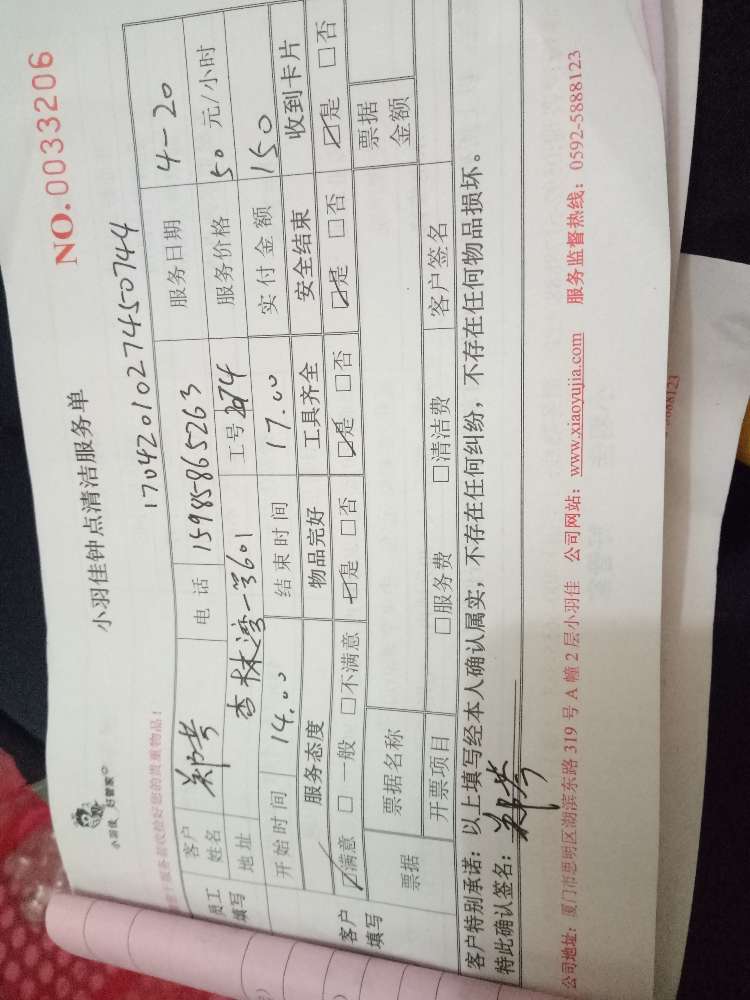 小羽佳 好管家
小羽佳钟点清洁服务单
NO.0033206
17042010274450744
服务前请收捡好您的贵重物品！
员工填写
客户姓名 郑芳 电话 15985865263 服务日期 4-20
地址 杏林湾-3601 工号 3974 服务价格 50 元/小时
开始时间 14.00 结束时间 17.00 实付金额 150
客户填写
服务态度 物品完好 工具齐全 安全结束 收到卡片
☑满意 □一般 □不满意 ☑是 □否 ☑是 □否 ☑是 □否 ☑是 □否
票据 票据名称 票据金额
开票项目 □服务费 □清洁费 客户签名
客户特别承诺：以上填写经本人确认属实，不存在任何纠纷，不存在任何物品损坏。
特此确认签名：郑芳
公司地址：厦门市思明区湖滨东路 319 号 A 幢 2 层小羽佳 公司网站：www.xiaoyujia.com 服务监督热线：0592-5888123
5888123